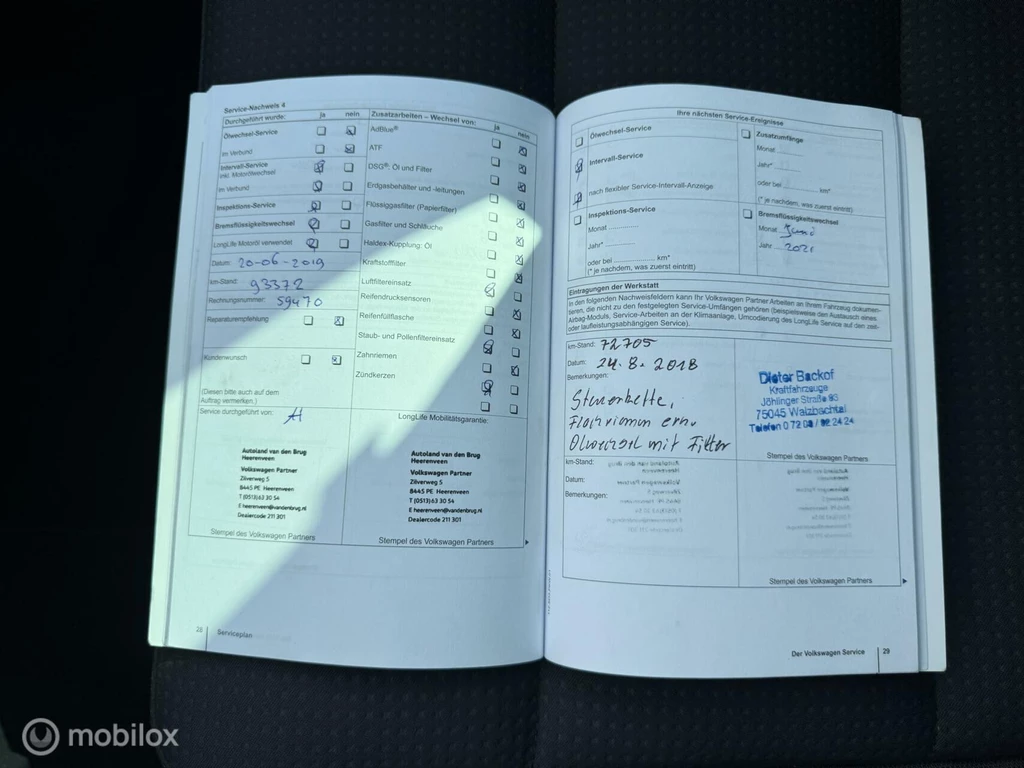 Service-Nachweis 4
Durchgeführt wurde: ja nein
Ölwechsel-Service
Im Verbund
Intervall-Service
inkl. Motorölwechsel
Im Verbund
Inspektions-Service
Bremsflüssigkeitswechsel
LongLife Motoröl verwendet
Datum: 20-06-2019
km-Stand: 93372
Rechnungsnummer: 59470
Reparaturempfehlung
Kundenwunsch
(Diesen bitte auch auf dem
Auftrag vermerken.)
Service durchgeführt von:
Autoland van den Brug
Heerenveen
Volkswagen Partner
Zilverweg 5
8445 PE Heerenveen
T (0513) 63 30 54
E heerenveen@vandenbrug.nl
Dealercode 211 301
Stempel des Volkswagen Partners
Zusatzarbeiten – Wechsel von: ja nein
AdBlue®
ATF
DSG®: Öl und Filter
Erdgasbehälter und -leitungen
Flüssiggasfilter (Papierfilter)
Gasfilter und Schläuche
Haldex-Kupplung: Öl
Kraftstofffilter
Luftfiltereinsatz
Reifendrucksensoren
Reifenfüllflasche
Staub- und Pollenfiltereinsatz
Zahnriemen
Zündkerzen
LongLife Mobilitätsgarantie:
Autoland van den Brug
Heerenveen
Volkswagen Partner
Zilverweg 5
8445 PE Heerenveen
T (0513) 63 30 54
E heerenveen@vandenbrug.nl
Dealercode 211 301
Stempel des Volkswagen Partners
28 Serviceplan
Ihre nächsten Service-Ereignisse
Ölwechsel-Service
Intervall-Service
nach flexibler Service-Intervall-Anzeige
Inspektions-Service
Monat
Jahr*
oder bei km*
(* je nachdem, was zuerst eintritt)
Zusatzumfänge
Monat
Jahr*
oder bei km*
(* je nachdem, was zuerst eintritt)
Bremsflüssigkeitswechsel
Monat Juni
Jahr 2021
Eintragungen der Werkstatt
In den folgenden Nachweisfeldern kann Ihr Volkswagen Partner Arbeiten an Ihrem Fahrzeug dokumen-
tieren, die nicht zu den festgelegten Service-Umfängen gehören (beispielsweise den Austausch eines
Airbag-Moduls, Service-Arbeiten an der Klimaanlage, Umcodierung des LongLife Service auf den zeit-
oder laufleistungsabhängigen Service).
km-Stand: 72705
Datum: 24.8.2018
Bemerkungen:
Steuerkette,
Flachriemen ern.
Ölwechsel mit Filter
Dieter Backof
Kraftfahrzeuge
Jöhlinger Straße 93
75045 Walzbachtal
Telefon 0 72 03 / 92 24 24
Stempel des Volkswagen Partners
km-Stand:
Datum:
Bemerkungen:
Stempel des Volkswagen Partners
Der Volkswagen Service 29
mobilox